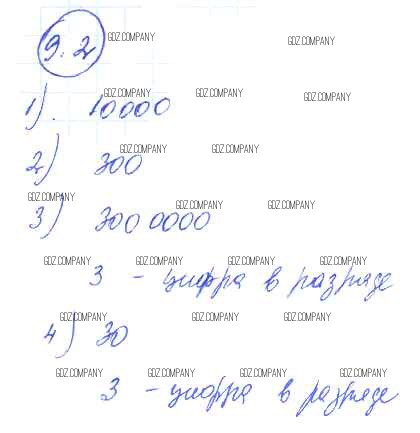 9.2
GDZ.COMPANY
GDZ.COMPANY
GDZ.COMPANY GDZ.COMPANY GDZ.COMPANY
1). 10000
GDZ.COMPANY GDZ.COMPANY
2) 300
GDZ.COMPANY GDZ.COMPANY GDZ.COMPANY
3) 300 0000
GDZ.COMPANY GDZ.COMPANY GDZ.COMPANY GDZ.COMPANY
3 - цифра в разряде
GDZ.COMPANY GDZ.COMPANY GDZ.COMPANY
4) 30
GDZ.COMPANY GDZ.COMPANY GDZ.COMPANY GDZ.COMPANY
3 - цифра в разряде